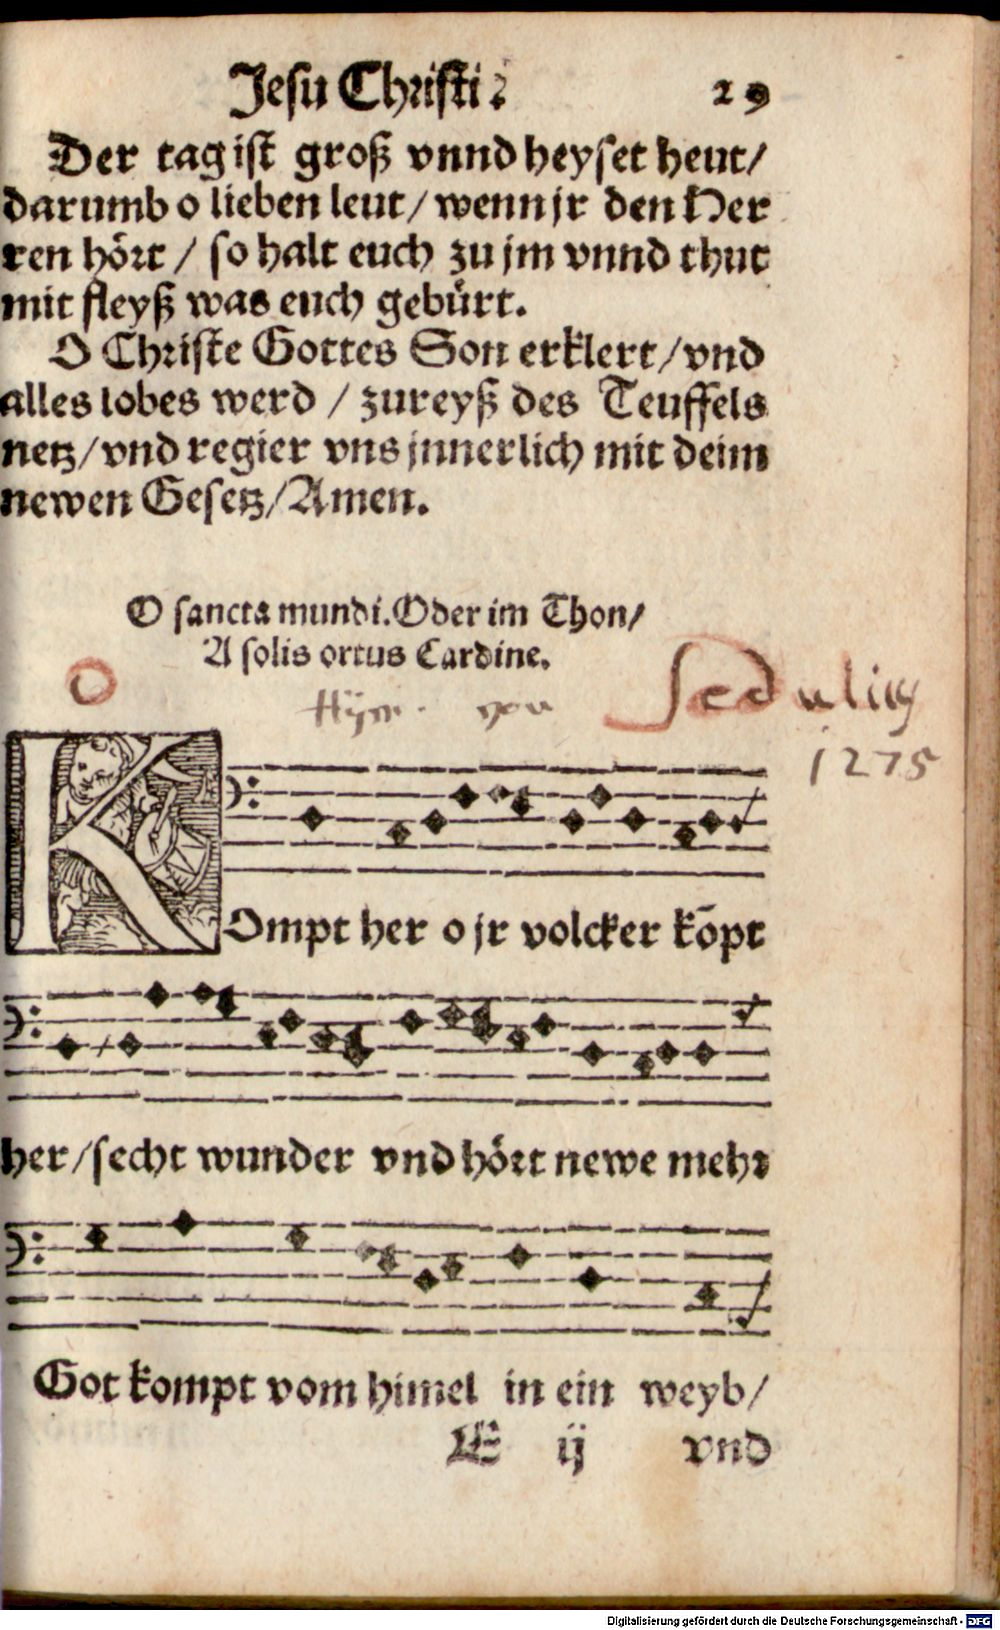 Jesu Christi. 29
Der tag ist groß vnnd heyset heut/
darumb o lieben leut/ wenn jr den Her
ren hört / so halt euch zu jm vnnd thut
mit fleyß was euch gebürt.
O Christe Gottes Son erklert/ vnd
alles lobes werd / zureyß des Teuffels
netz/ vnd regier vns jnnerlich mit deim
newen Gesetz/ Amen.
O sancta mundi. Oder im Thon/
A solis ortus Cardine.
Hÿm. von Sedulius
1275
KOmpt her o jr volcker kōpt
her/ secht wunder vnd hört newe mehr
Got kompt vom himel in ein weyb/
E ij vnd
Digitalisierung gefördert durch die Deutsche Forschungsgemeinschaft - DFG